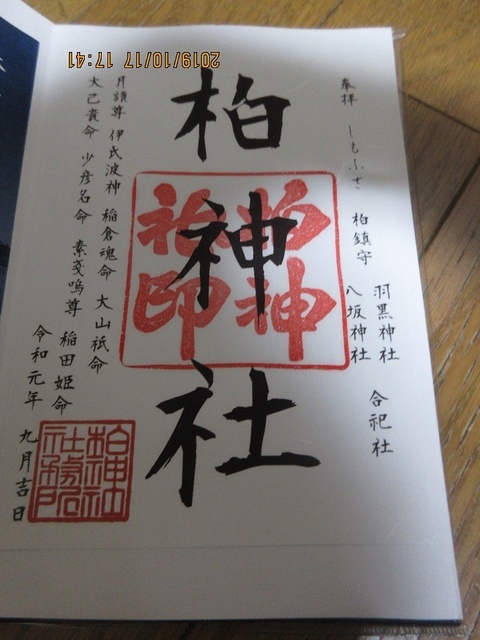 奉拝 しもふさ 柏鎮守 羽黒神社 八坂神社 合祀社
柏神社
柏神社印
月讀尊 伊氐波神 稲倉魂命 大山祇命
大己貴命 少彦名命 素戔嗚尊 稲田姫命
令和元年 九月吉日
柏神社社務所印
2019/10/17 17:41